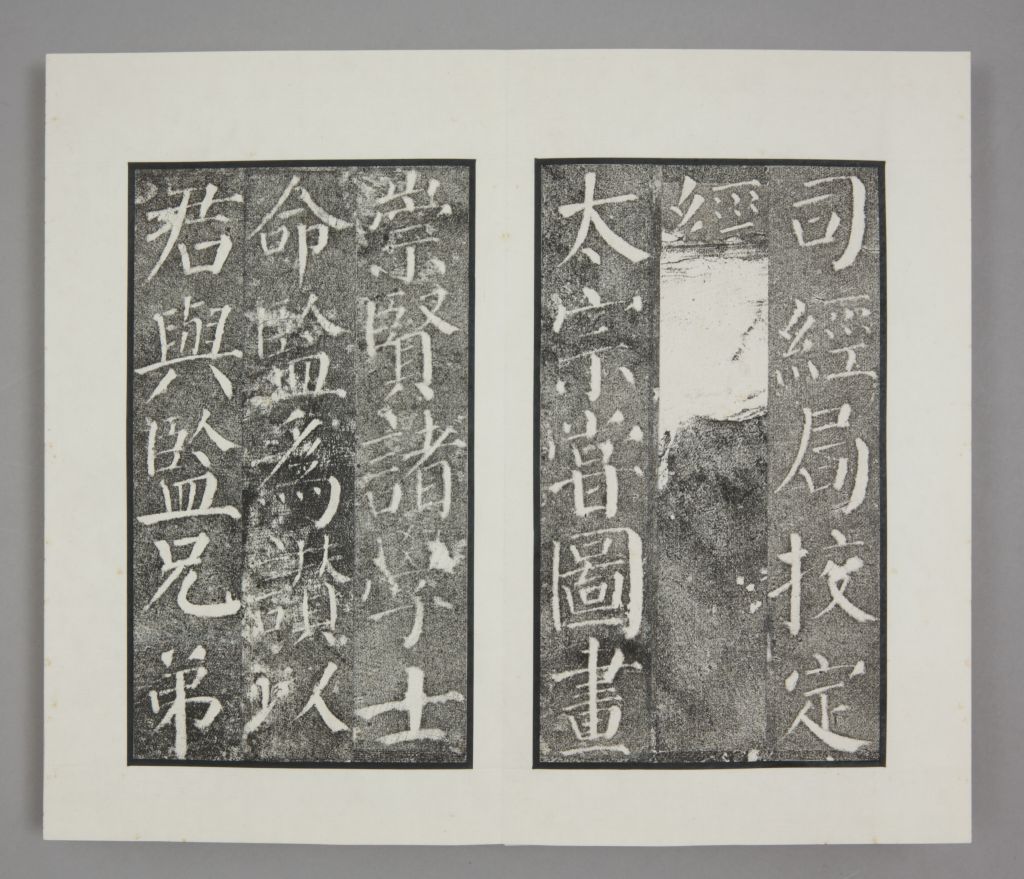 司經局挍定
經
太宗甞圖畫
崇賢諸學士
命監為讃以
君與監兄弟